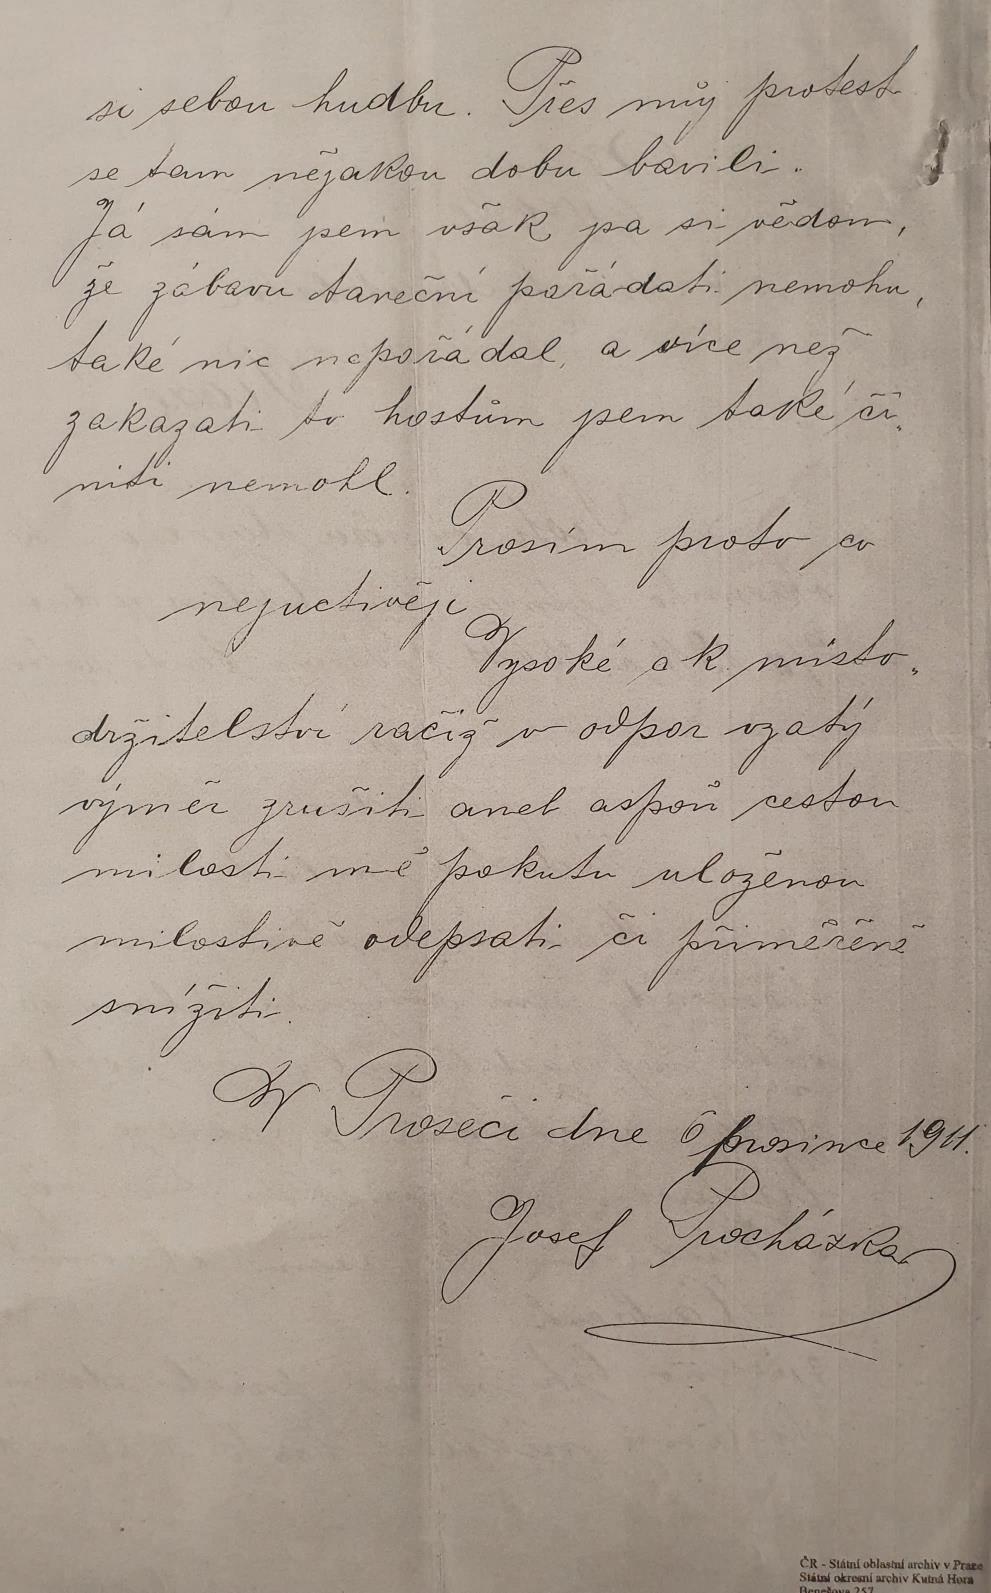 si sebou hudbu. Přes můj protest
se tam nějakou dobu bavili.
Já sám jsem však jsa si vědom,
že zábavu taneční pořádati nemohu,
také nic nepořádal, a více než
zakazati to hostům jsem také či„
niti nemohl.
Prosím proto co
nejuctivěji
Vysoké c k. místo„
držitelství račiž v odpor vzatý
výměr zrušiti aneb aspoň cestou
milosti mě pokutu uloženou
milostivě odepsati či přiměřeně
snížiti.
V Proseči dne 6 prosince 1911.
Josef Procházka
ČR - Státní oblastní archiv v Praze
Státní okresní archiv Kutná Hora
Benešova 257